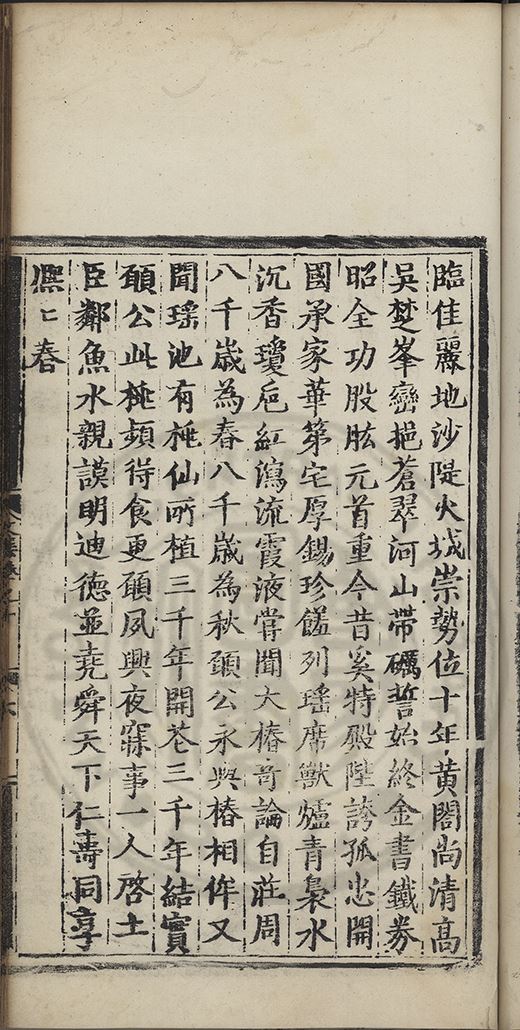 臨佳麗地沙隄火城崇勢位十年黃閣尚清髙
吳楚峯巒挹蒼翠河山帶礪誓始終金書鐵券
昭全功股肱元首重今昔奚特殿陛誇孤忠開
國承家華第宅厚錫珍饈列瑶席獸爐青裊水
沉香瓊巵紅瀉流霞液嘗聞大椿奇論自莊周
八千歳為春八千歳為秋願公永與椿相侔又
聞瑶池有桃仙所植三千年開花三千年結實
願公此桃頻得食更願夙興夜寐事一人啓土
臣鄰魚水親謨明迪德並堯舜天下仁壽同享
熈〻春